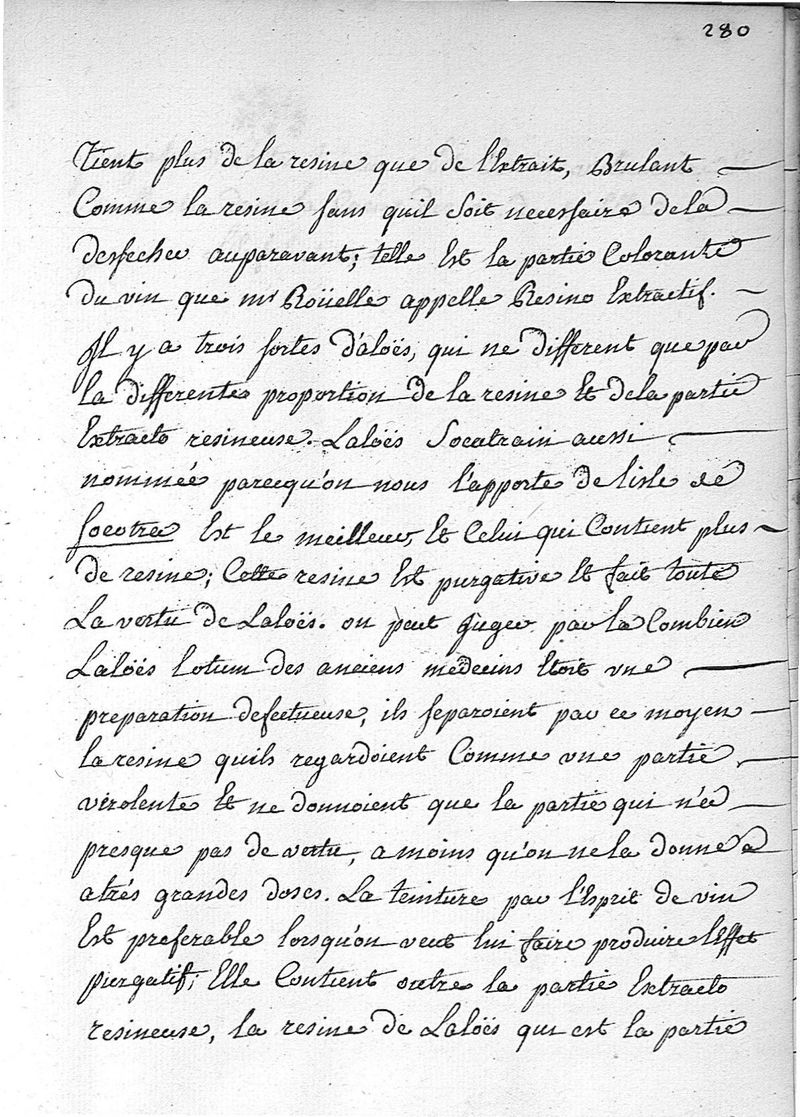 280
Tient plus de la resine que de l'Extrait, Brulant
Comme la resine sans quil soit necessaire de la
dessecher auparavant; telle Est la partie Colorante
du vin que mr Roüelle appelle Resino Extractif.
Il y a trois sortes d'aloës, qui ne different que par
la differente proportion de la resine Et de la partie
Extracto resineuse. Laloës Socatrain aussi
nommée parcequ'on nous l'apporte de lisle de
Socotra Est le meilleur, Et Celui qui Contient plus
de resine; Cette resine Est purgative Et fait toute
La vertu de Laloës. on peut juger par la Combien
Laloës lotum des anciens medecins Etoit une
preparation defectueuse, ils separoient par ce moyen
la resine quils regardoient Comme une partie
virolente Et ne donnoient que la partie qui n'a
presque pas de vertu, a moins qu'on ne la donne a
a trés grandes doses. La teinture par l'Esprit de vin
Est preferable lorsqu'on veut lui faire produire l'Effet
purgatif; Elle Contient outre la partie Extracto
resineuse, la resine de Laloës qui est la partie